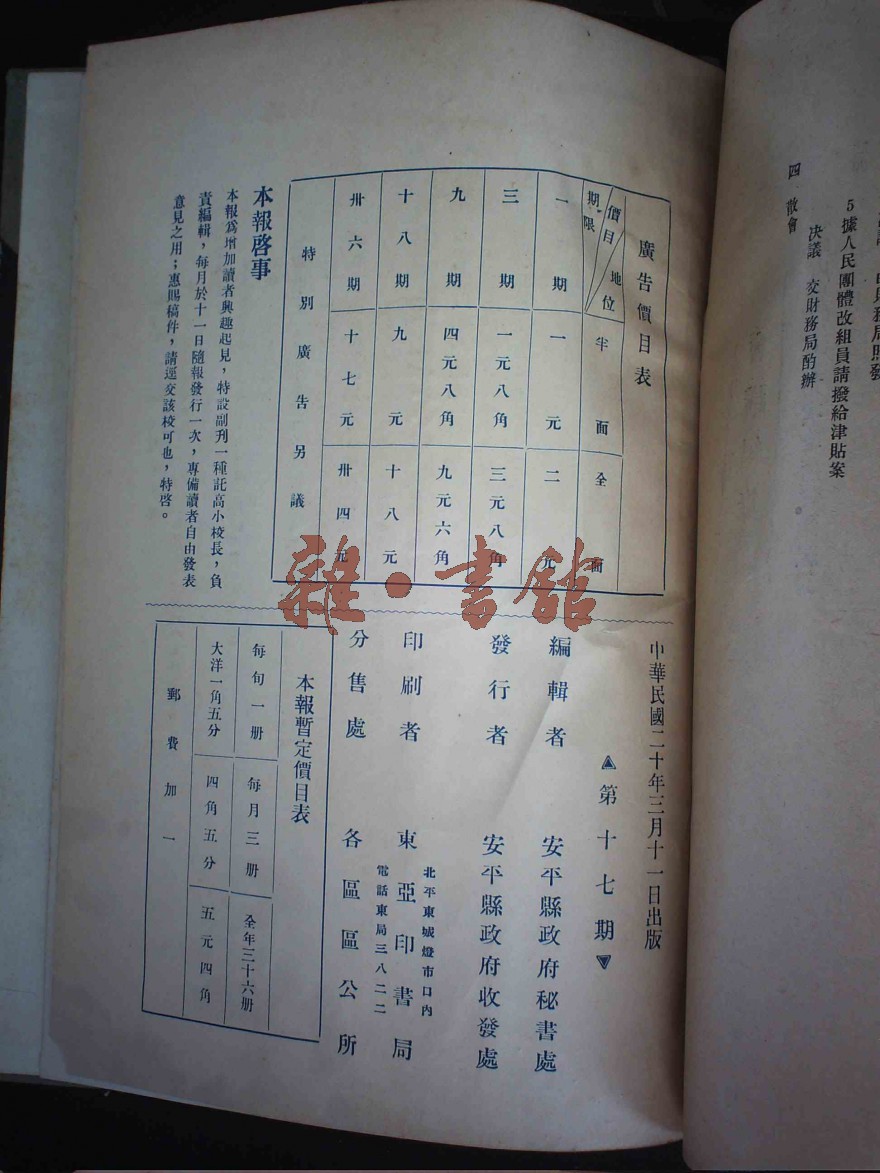 5 據人民團體改組員請撥給津貼案
决議 交財務局酌辦
四 散會
廣告價目表
價目 地位 期限
半面
全面
一期
一元
二元
三期
一元八角
三元八角
九期
四元八角
九元六角
十八期
九元
十八元
卅六期
十七元
卅四元
特別廣告另議
本報啓事
本報爲增加讀者興趣起見，特設副刊一種託高小校長，負
責編輯，每月於十一日隨報發行一次，專備讀者自由發表
意見之用；惠賜稿件，請逕交該校可也，特啓。
中華民國二十年三月十一日出版
▲第十七期▼
編輯者 安平縣政府秘書處
發行者 安平縣政府收發處
北平東城燈市口內
印刷者 東亞印書局
電話東局三八二二
分售處 各區區公所
本報暫定價目表
每旬一册
每月三册
全年三十六册
大洋一角五分
四角五分
五元四角
郵費加一
雜·書館